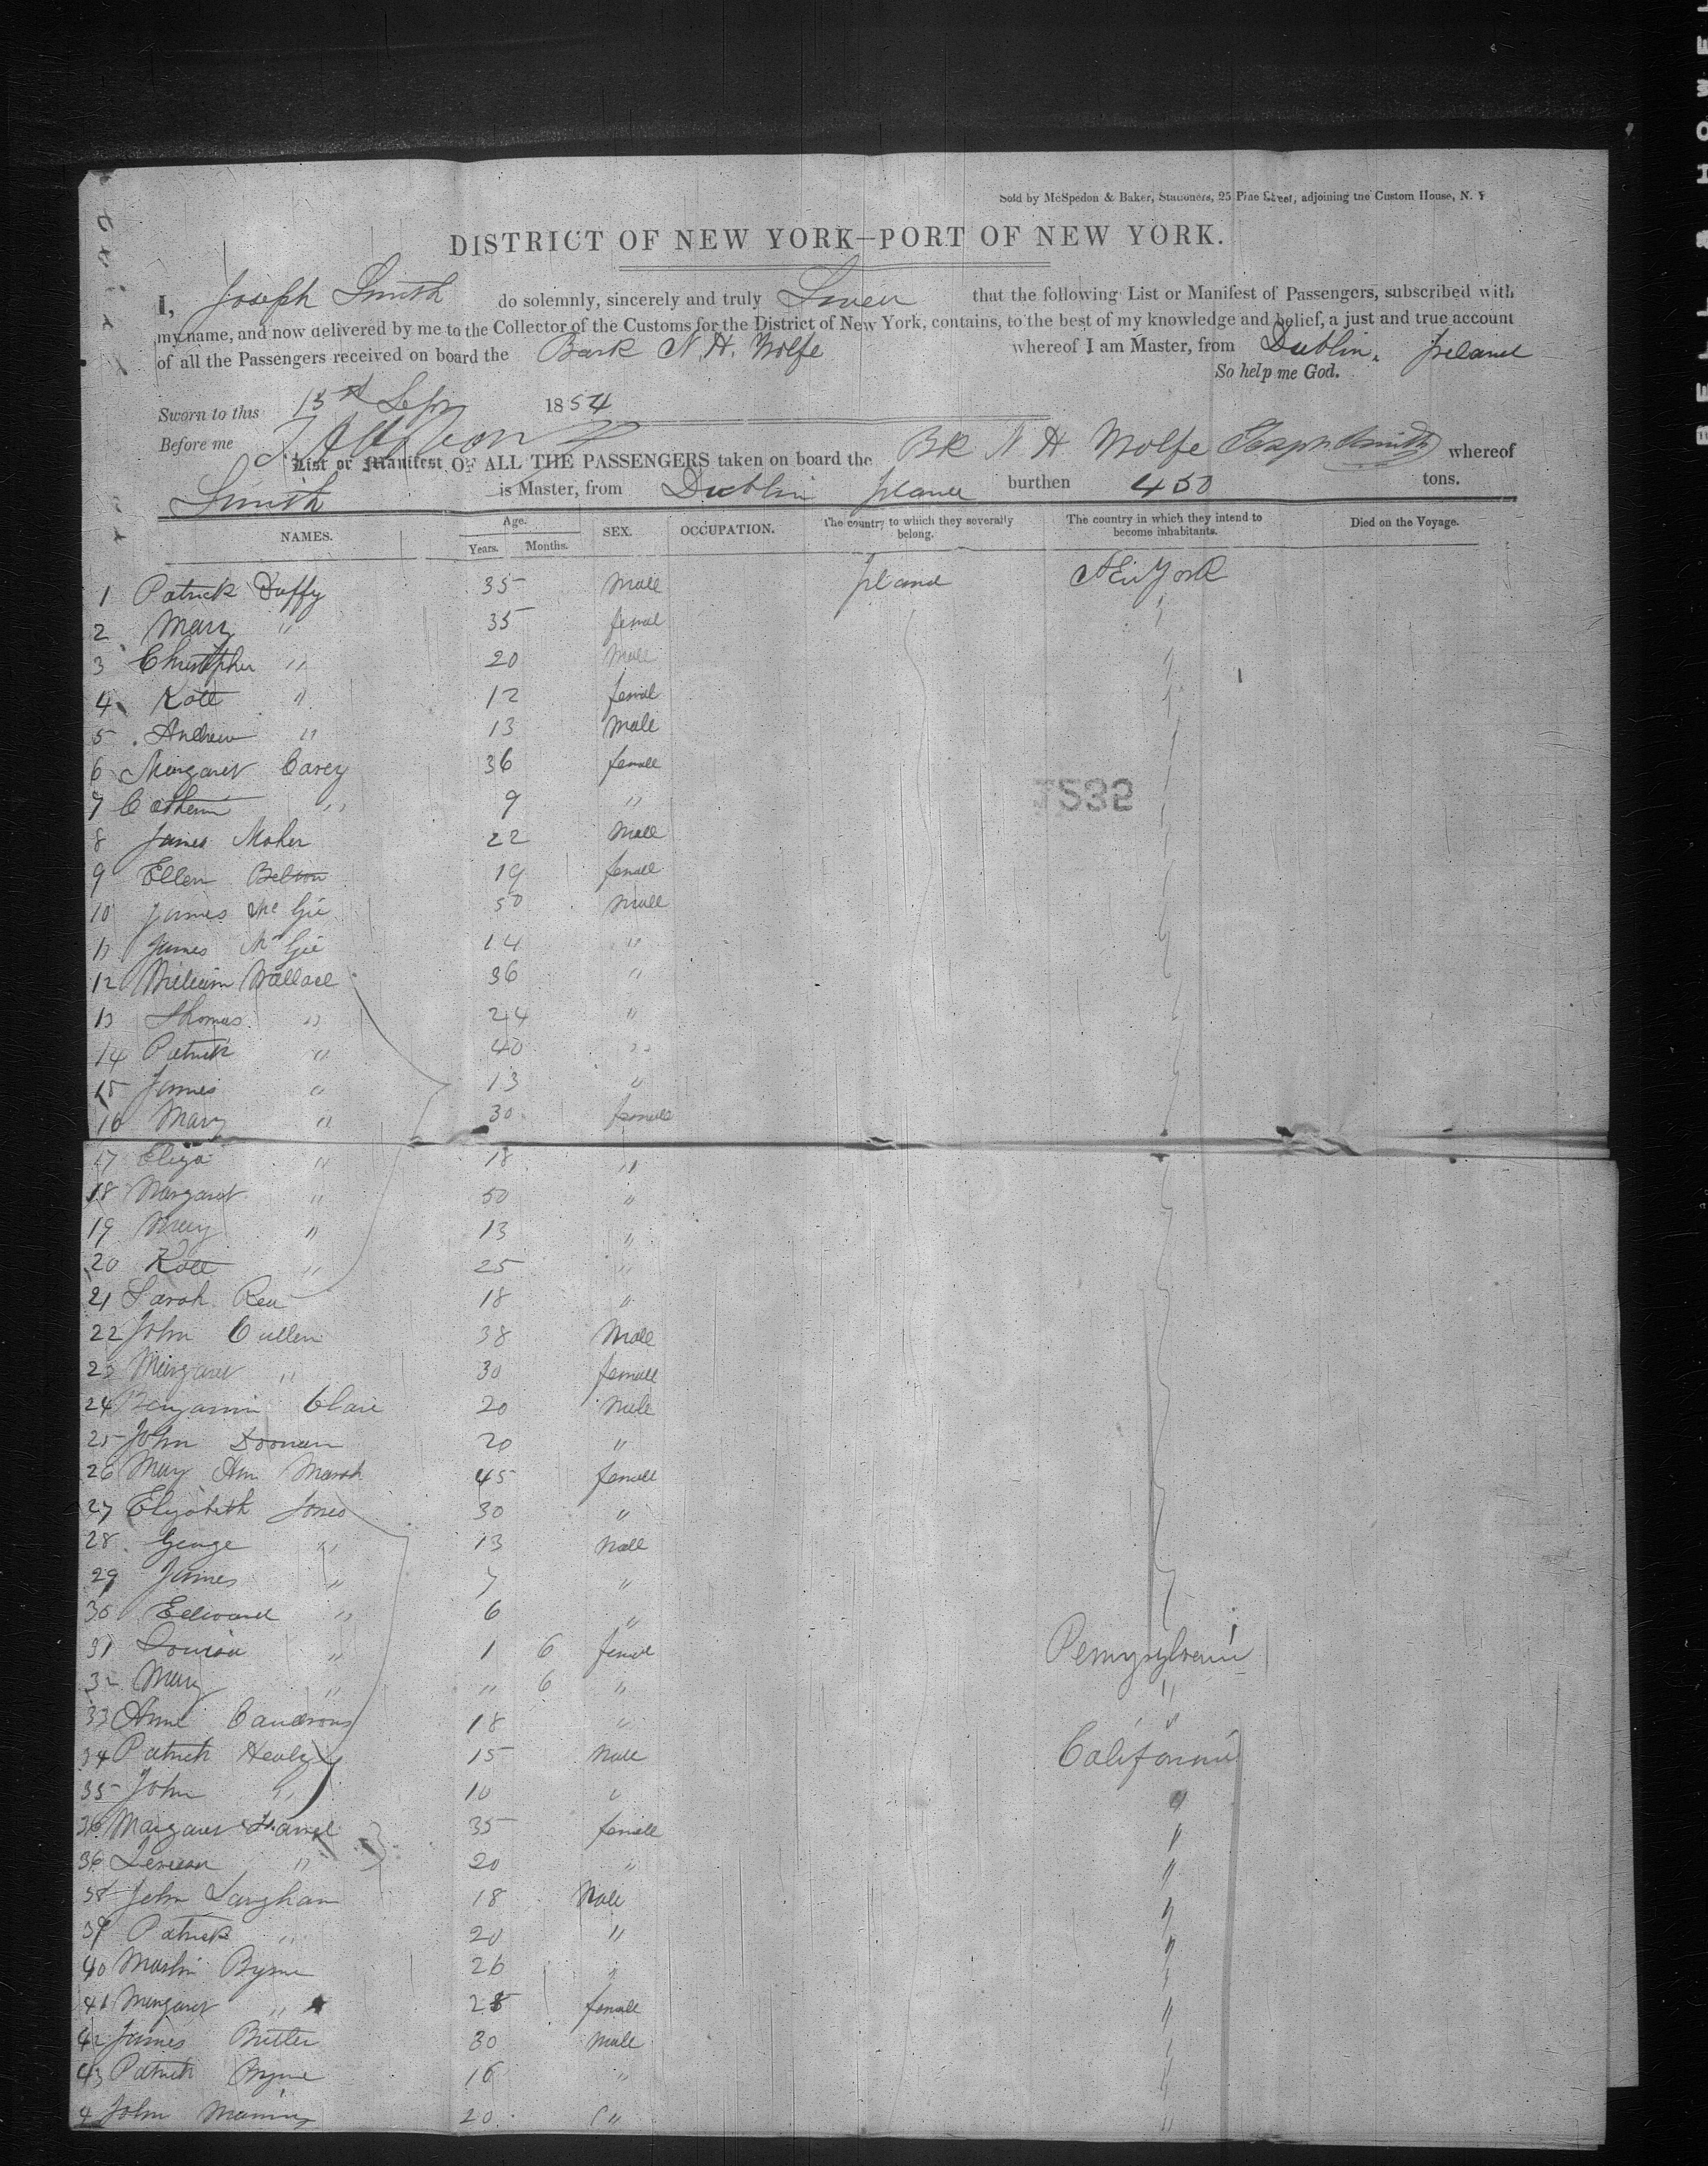 Sold by McSpedon & Baker, Stationers, 25 Pine Street, adjoining the Custom House, N. Y
DISTRICT OF NEW YORK—PORT OF NEW YORK.
I, Joseph Smith do solemnly, sincerely and truly Swear that the following List or Manifest of Passengers, subscribed with
my name, and now delivered by me to the Collector of the Customs for the District of New York, contains, to the best of my knowledge and belief, a just and true account
of all the Passengers received on board the Bark N. H. Wolfe whereof I am Master, from Dublin, Ireland
So help me God.
Sworn to this 13th Sep 1854
Before me
List or Manifest OF ALL THE PASSENGERS taken on board the BK N H Wolfe Joseph Smith whereof
Smith is Master, from Dublin Ireland burthen 450 tons.
NAMES. Age. Years. Months. SEX. OCCUPATION. The country to which they severally belong. The country in which they intend to become inhabitants. Died on the Voyage.
1 Patrick Duffy 35 Male Ireland New York
2 Mary " 35 femal "
3 Christopher " 20 Male "
4 Kate " 12 femal "
5 Andrew " 13 Male "
6 Margaret Carey 36 female "
7 Catherin " 9 " "
8 James Maher 22 Male "
9 Ellen 19 female "
10 James Mc Gee 50 Male "
11 James Mc Gee 14 " "
12 William Wallace 36 " "
13 Thomas " 24 " "
14 Patrick " 40 " "
15 James " 13 " "
16 Mary " 30 female "
17 Eliza " 18 " "
18 Margaret " 50 " "
19 Mary " 13 " "
20 Kate " 25 " "
21 Sarah Rea 18 " "
22 John Cullen 38 Male "
23 Margaret " 30 female "
24 Benjamin Clare 20 Male "
25 John Doonan 20 " "
26 Mary Ann Marsh 45 female "
27 Elizabeth Jones 30 " "
28 George " 13 Male "
29 James " 7 " "
30 Edward " 6 " "
31 Louisa " 1 6 female Pennysylvania
32 Mary " " 6 " "
33 Anne 18 " "
34 Patrick Healy 15 Male California
35 John " 10 " "
36 Margaret 35 female "
36 " 20 " "
38 John Langhan 18 Male "
39 Patrick " 20 " "
40 Martin Byrne 26 " "
41 Margaret " 28 female "
42 James Butler 30 Male "
43 Patrick Byrne 16 " "
4 John Manning 20 " "
BELL & HOWEL